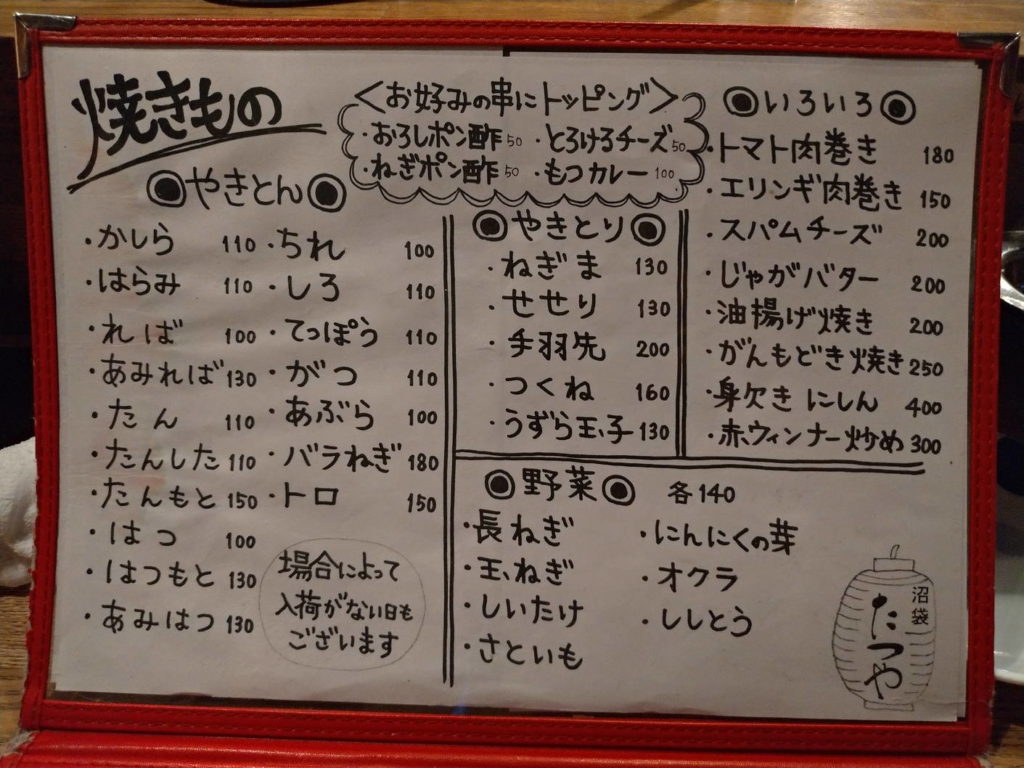 焼きもの
<お好みの串にトッピング>
・おろしポン酢 50 ・とろけるチーズ 50
・ねぎポン酢 50 ・もつカレー 100
◉やきとん◉
・かしら 110
・はらみ 110
・ればー 100
・あみれば 130
・たん 110
・たんした 110
・たんもと 150
・はつ 100
・はつもと 130
・あみはつ 130
・ちれ 100
・しろ 110
・てっぽう 110
・がつ 110
・あぶら 100
・バラねぎ 180
・トロ 150
場合によって
入荷がない日も
ございます
◉やきとり◉
・ねぎま 130
・せせり 130
・手羽先 200
・つくね 160
・うずら玉子 130
◉いろいろ◉
・トマト肉巻き 180
・エリンギ肉巻き 150
・スパムチーズ 200
・じゃがバター 200
・油揚げ焼き 200
・がんもどき焼き 250
・身欠きにしん 400
・赤ウィンナー炒め 300
◉野菜◉ 各140
・長ねぎ
・玉ねぎ
・しいたけ
・さといも
・にんにくの芽
・オクラ
・ししとう
沼袋
たつや